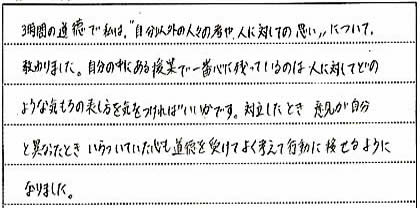 3時間の道徳で私は、"自分以外の人々の考や、人に対しての思い"について、
教わりました。自分の中にある授業で一番心に残っているのは人に対してどの
ような気もちの表し方を気をつければいいかです。対立したとき 意見が自分
と異なったとき いらついていた心も道徳を受けてよく考えて行動に移せるように
なりました。